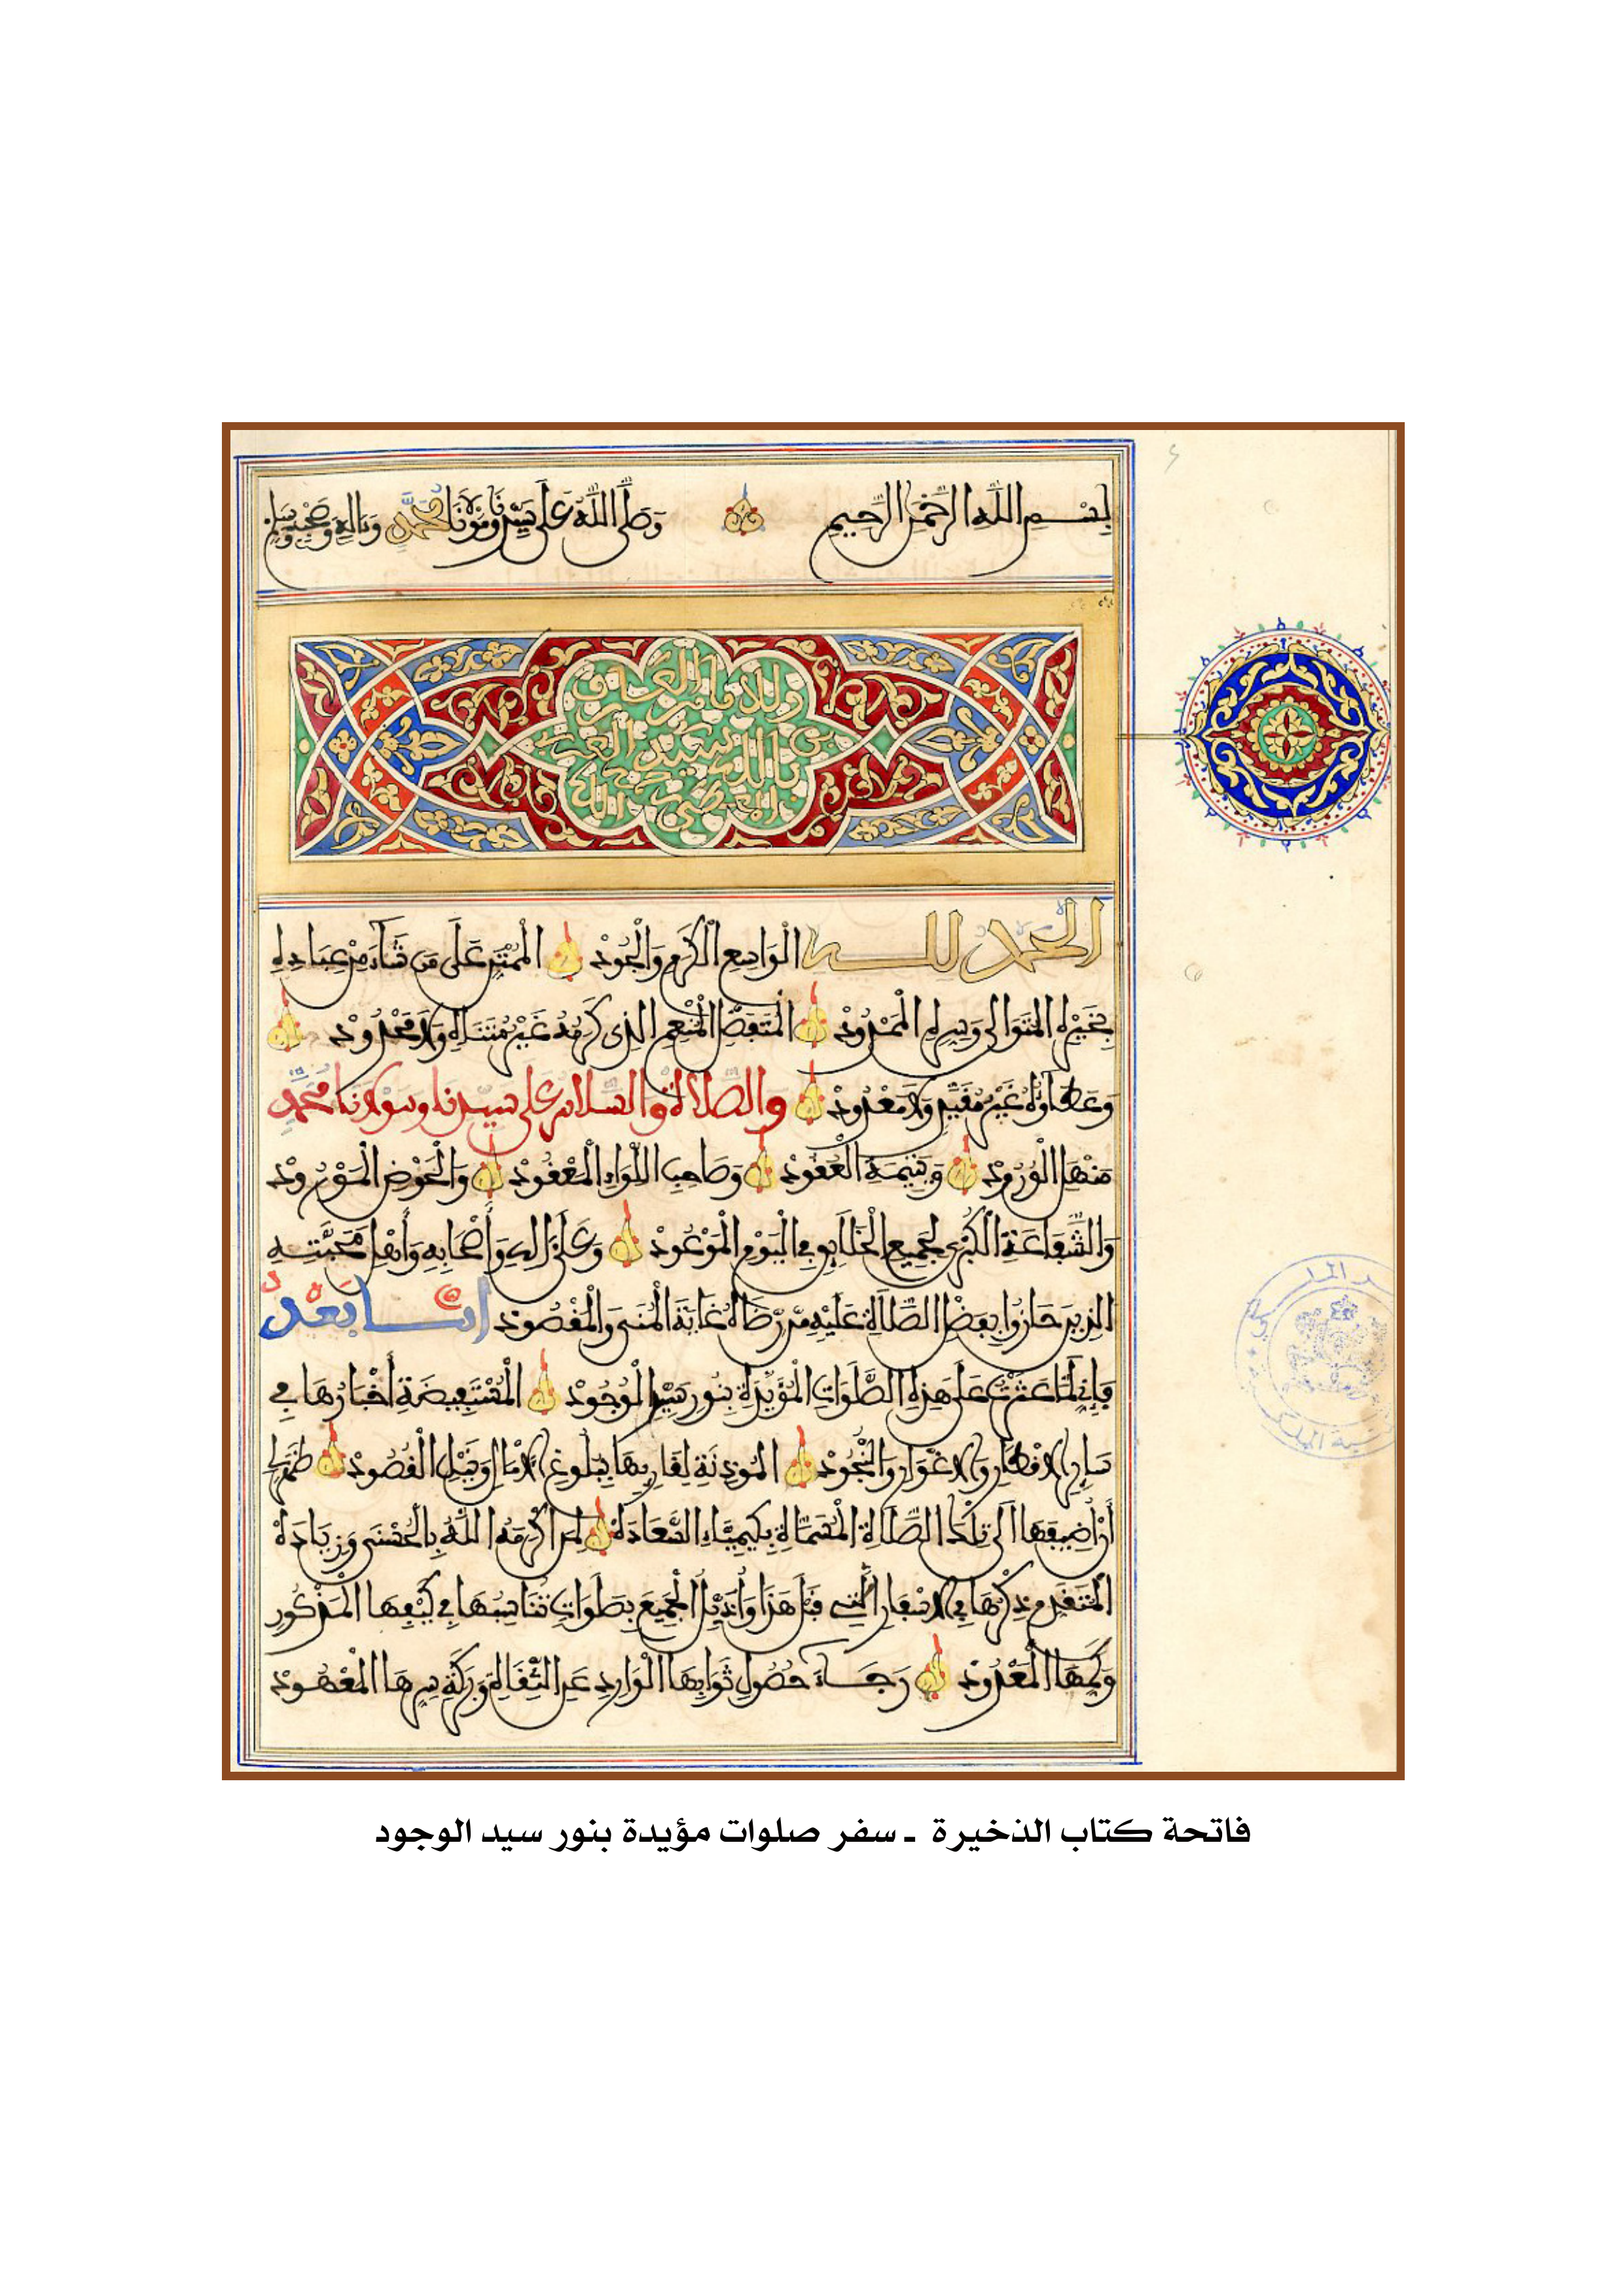 بِسْمِ اللَّهِ الرَّحْمَنِ الرَّحِيمِ وَصَلَّى اللَّهُ عَلَى سَيِّدِنَا وَمَوْلَانَا مُحَمَّدٍ وَءَالِهِ وَصَحْبِهِ وَسَلَّمَ
الحمد لله الْوَاسِعِ الْكَرَمِ وَالْجُودْ الْمُمْتَنِّ عَلَى مَن شَاءَ مِنْ عِبَادِهِ
بِخَيْرِهِ الْمُتَوَالِي وَسِرِّهِ الْمَمْدُودْ الْمُتَفَضِّلِ الْمُنْعِمِ الَّذِي كَرَمُهُ غَيْرُ مُتَنَاهٍ وَلَا مَحْدُودْ
وَعَطَاؤُهُ غَيْرُ مُقَيَّدٍ وَلَا مَعْدُودْ وَالصَّلَاةُ وَالسَّلَامُ عَلَى سَيِّدِنَا وَمَوْلَانَا مُحَمَّدٍ
مَنْهَلِ الْوُرُودْ وَيَتِيمَةِ الْعُقُودْ وَصَاحِبِ اللِّوَاءِ الْمَعْقُودْ وَالْحَوْضِ الْمَوْرُودْ
وَالشَّفَاعَةِ الْكُبْرَى لِجَمِيعِ الْخَلَائِقِ فِي الْيَوْمِ الْمَوْعُودْ وَعَلَى ءَالِهِ وَأَصْحَابِهِ وَأَهْلِ مَحَبَّتِهِ
الَّذِينَ حَازُوا بِفَضْلِ الصَّلَاةِ عَلَيْهِ مِنْ رِضَاهُ غَايَةَ الْمُنَى وَالْمَقْصُودْ أما بَعْدُ
فَإِنِّي لَمَّا عَثَرْتُ عَلَى هَذِهِ الصَّلَوَاتِ الْمُؤَيَّدَةِ بِنُورِ سَيِّدِ الْوُجُودْ الْمُسْتَفِيضَةِ أَخْبَارُهَا فِي
سَائِرِ الْأَقْطَارِ وَالْأَغْوَارِ وَالنُّجُودْ الْمُوذِنَةِ لِقَارِيهَا بِبُلُوغِ الْأَمَالِ وَنَيْلِ الْقُصُودْ ظَهَرَ لِي
أَنْ أُضِيفَهَا إِلَى تِلْكَ الصَّلَاةِ الْمُسَمَّاةِ بِكِيمِيَاءِ السَّعَادَهْ لِمَنْ أَكْرَمَهُ اللَّهُ بِالْحُسْنَى وَزِيَادَهْ
الْمُتَقَدِّمِ ذِكْرُهَا فِي الْأَسْفَارِ الَّتِي قَبْلَ هَذَا وَأُذَيِّلَ الْجَمِيعَ بِصَلَوَاتٍ تُنَاسِبُهَا فِي كَيْفِهَا الْمَذْكُورِ
وَكَمِّهَا الْمَعْدُودْ رَجَاءَ حُصُولِ ثَوَابِهَا الْوَارِدِ عَنِ الثِّقَاةِ وَبَرَكَةِ سِرِّهَا الْمَعْهُودْ
فاتحة كتاب الذخيرة ـ سفر صلوات مؤيدة بنور سيد الوجود